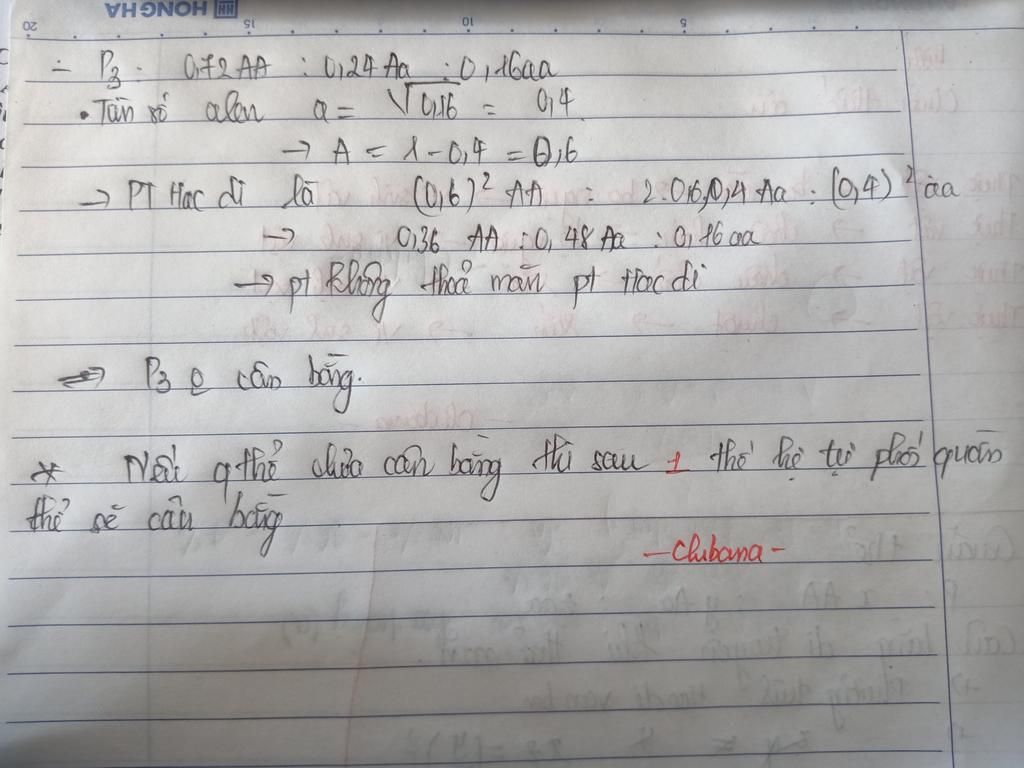 HONG HA
20 15 10 5
- P3 : 0,72AA : 0,24Aa : 0,16aa
• Tần số alen a = √0,16 = 0,4
→ A = 1 - 0,4 = 0,6
→ PT Hacdi là (0,6)² AA : 2.0,6.0,4 Aa : (0,4)² aa
→ 0,36 AA : 0,48 Aa : 0,16 aa
→ pt không thoả mãn pt Hacdi
⇒ P3 cân bằng.
* Nếu qthể chưa cân bằng thì sau 1 thế hệ tự phối quần
thể sẽ cân bằng
- Chibana -